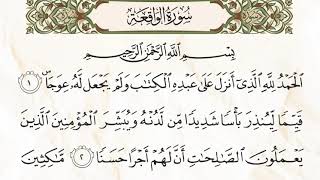 سُورَةُ الوَاقِعَةِ
بِسْمِ اللَّهِ الرَّحْمَٰنِ الرَّحِيمِ
الْحَمْدُ لِلَّهِ الَّذِي أَنزَلَ عَلَىٰ عَبْدِهِ الْكِتَابَ وَلَمْ يَجْعَل لَّهُ عِوَجًا ۜ ١
قَيِّمًا لِّيُنذِرَ بَأْسًا شَدِيدًا مِّن لَّدُنْهُ وَيُبَشِّرَ الْمُؤْمِنِينَ الَّذِينَ
يَعْمَلُونَ الصَّالِحَاتِ أَنَّ لَهُمْ أَجْرًا حَسَنًا ٢ مَّاكِثِينَ